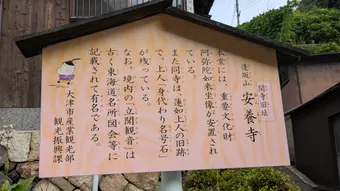 関寺旧址
逢坂山 安養寺
本堂には、重要文化財
阿弥陀如来坐像が安置され
また同寺は、蓮如上人の旧跡
で、上人「身代わり名号石」
が残っている。
なお、境内の「立聞観音」は
古く東海道名所図会等に
記載されて有名である。
大津市産業観光部
観光振興課